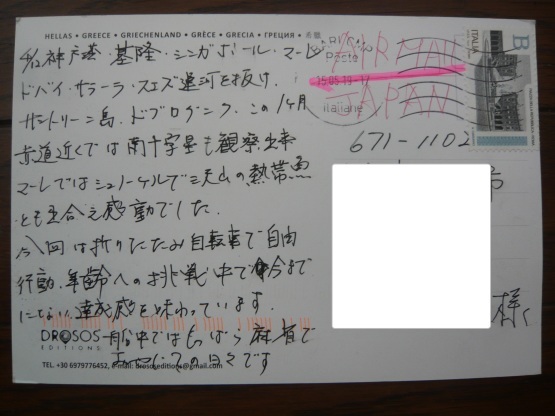 HELLAS • GREECE • GRIECHENLAND • GRÈCE • GRECIA • ГРЕЦИЯ • 希臘
4/12神戸港・基隆・シンガポール・マーレ
ドバイ・サラーラ・スエズ運河を抜け、
サントリーニ島、ドブロブニク、この1ヶ月
赤道近くでは南十字星も観察出来
マーレではシュノーケルで沢山の熱帯魚
とも出合え感動でした。
今回は折りたたみ自転車で自由
行動、年齢への挑戦中で今まで
にない達成感を味わっています。
船中ではもっぱら麻雀で
の日々です
DROSOS
EDITIONS
TEL. +30 6979776452, e-mail: drososeditions@gmail.com
Poste
italiane
AIR MAIL
JAPAN
ITALIA
B
671-1102
市
様